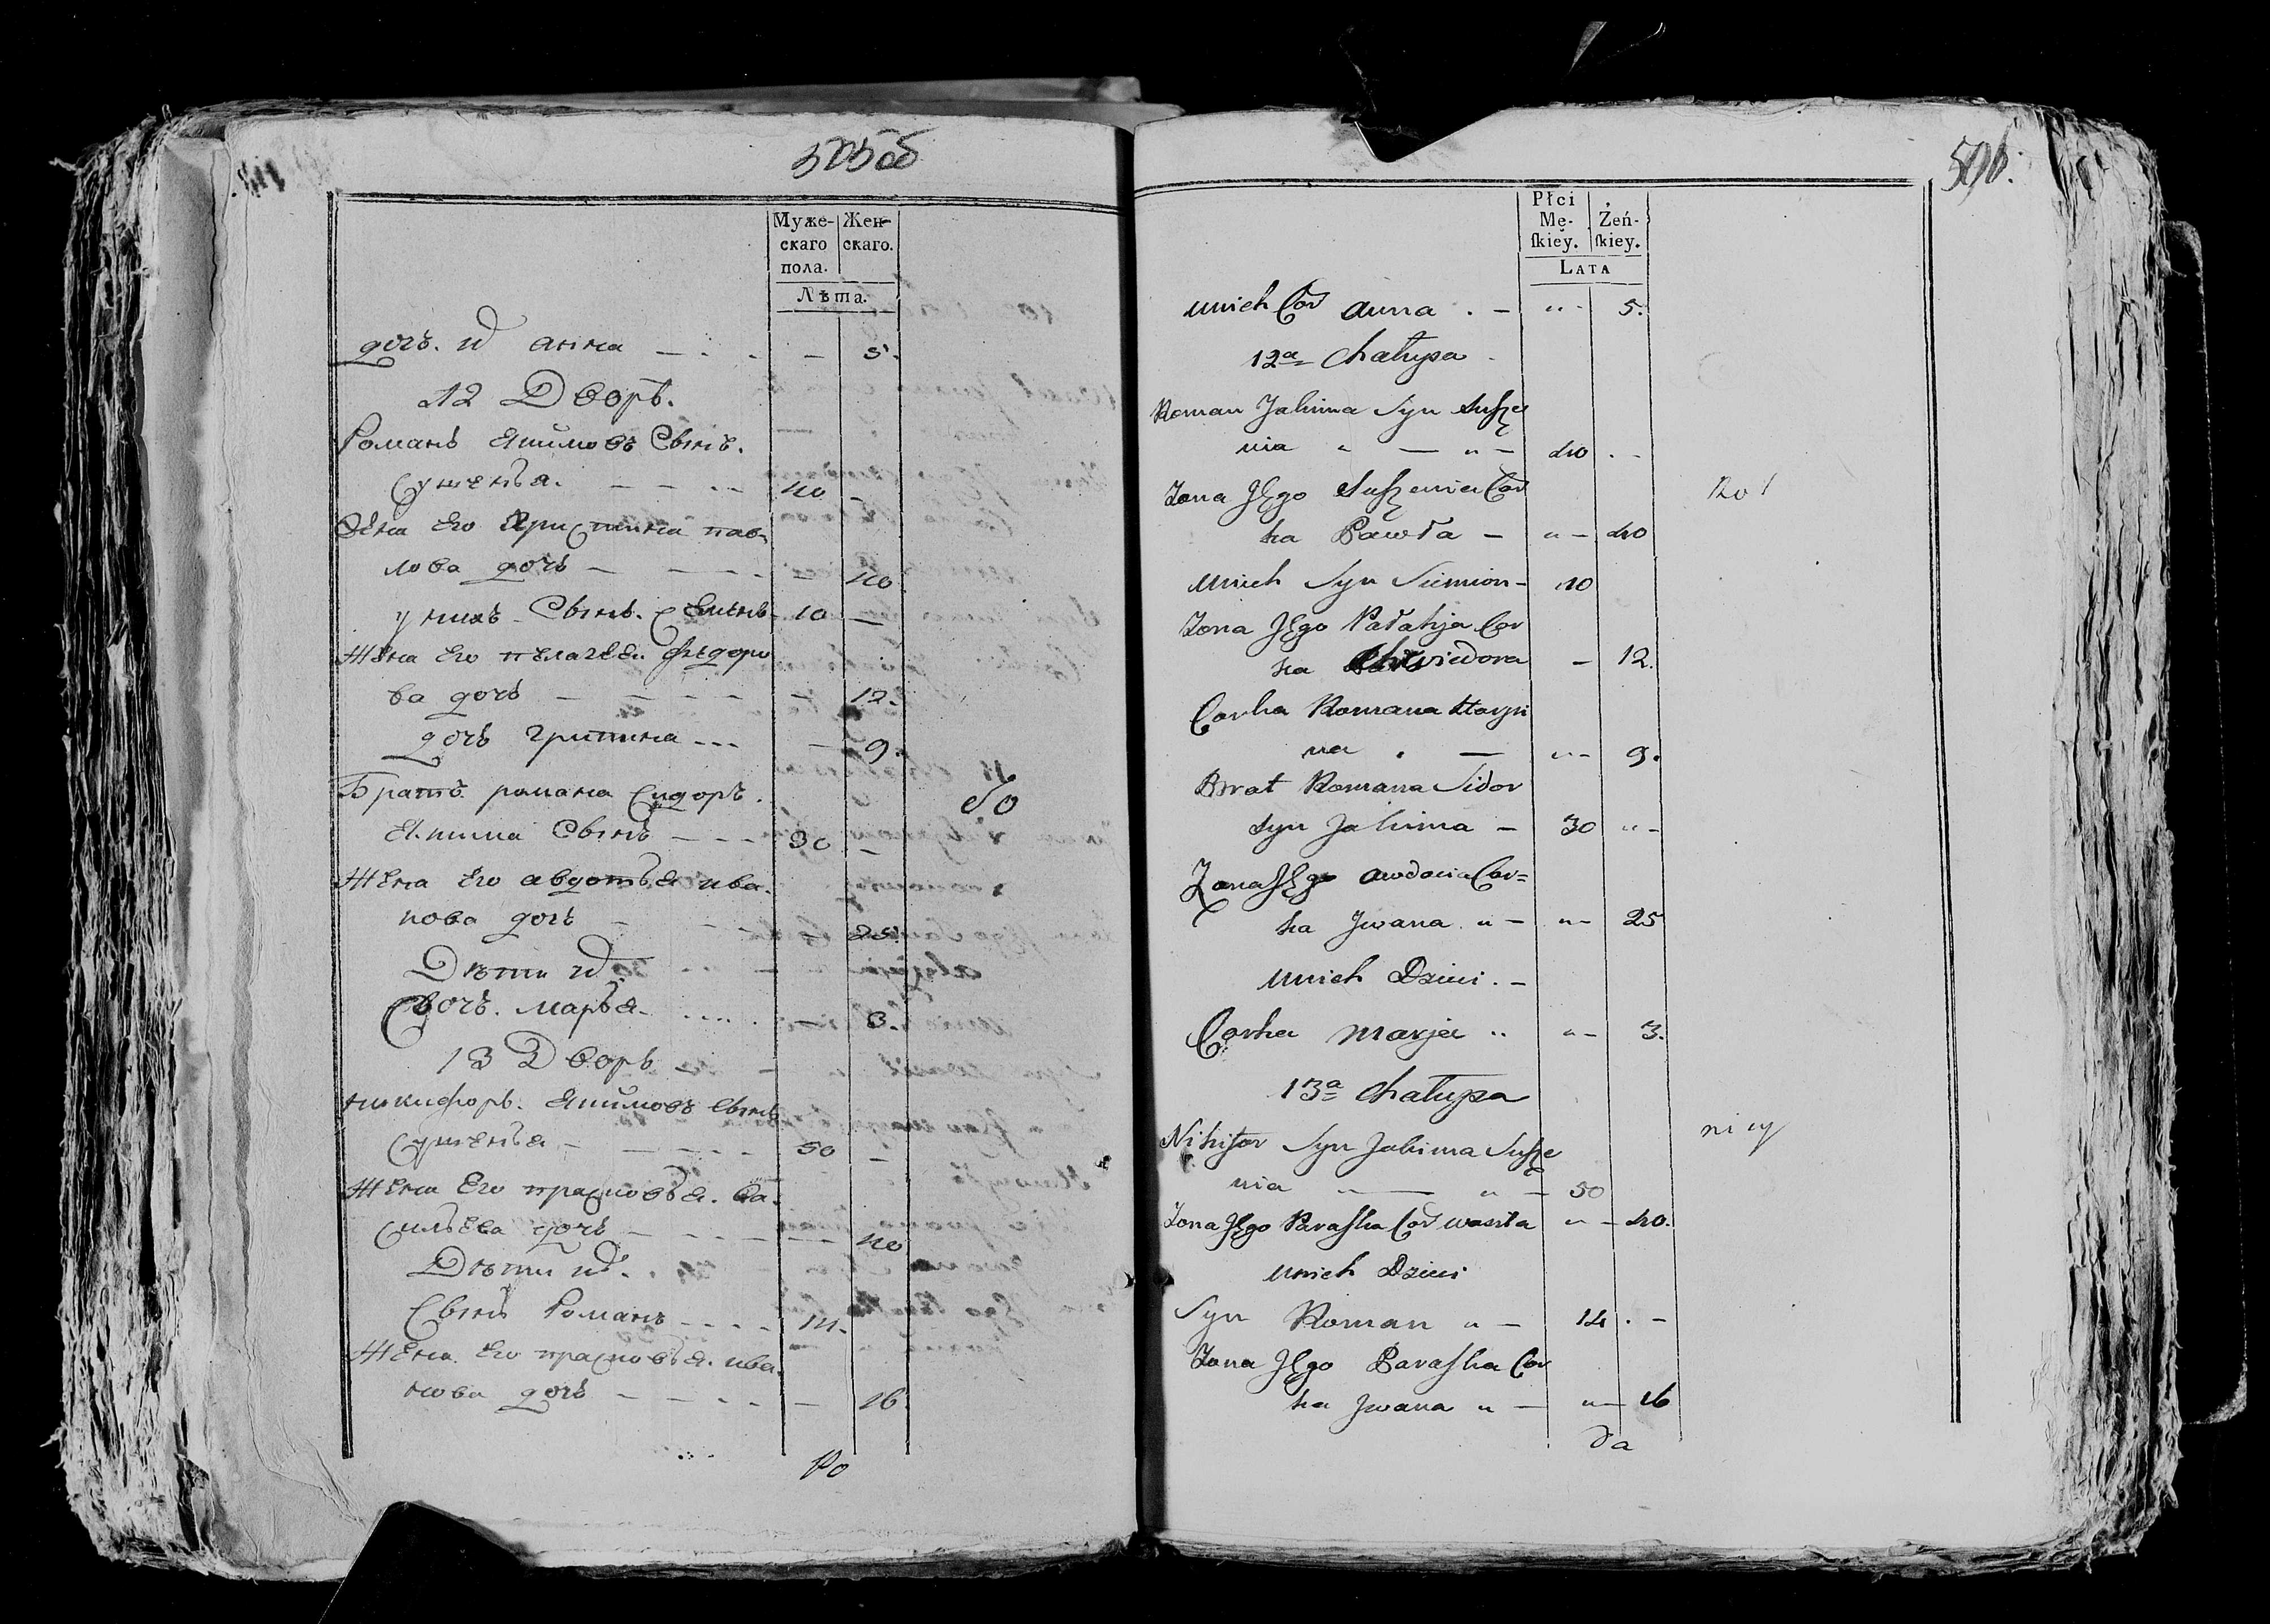 505об
Муже-
скаго
пола.
Жен-
скаго.
Лѣта.
дочь. их анна — 5.
12 Дворъ.
Романъ Якимовъ Сынъ.
Сушеня. 40 —
Жена Его Кристина пав-
лова дочь — — 40
у нихъ Сынъ. Семенъ 10 —
Жена Его пелагея федоро
ва дочь — — 12.
дочь грипина — 9.
Братъ романа Сидоръ.
Якима Сынъ — 30 —
Жена Его авдотья ива-
нова дочь — 25.
Дети их.
дочь. марья — 3.
13 Дворъ
никифоръ. Якимовъ Сынъ
Сушеня — 50 —
Жена Его прасковья. Ва-
сильева дочь — — 40
Дети их.
Сынъ Романъ — 14.
Жена Его прасковья. ива
нова дочь — — 16
Ро
506.
Płci
Mę-
ſkiey.
Żeń-
ſkiey.
LATA
unich Cor Anna . — „ - 5.
12a Chałupa
Roman Jakima Syn Susze
nia „ — „ — 40 . -
Zona Jego Suszenia Cor
ka Pawła — „ — 40
unich Syn Siemion — 10
Zona Jego Pałahja Cor
ka Chwiedora — 12.
Corka Romana Horpi
na . — „ — 9.
Brat Romana Sidor
Syn Jakima — 30 „ -
Zona Jego Awdocia Cor=
ka Jwana „ — „ — 25
unich Dzieci . —
Corka Marja „ „ — 3.
13a Chałupa
Nikifor Syn Jakima Susze
nia „ — „ — 50
Zona Jego Paraska Cor Wasila „ — 40.
unich Dzieci
Syn Roman „ — 14 . —
Zona Jego Paraska Cor
ka Jwana „ — „ — 16